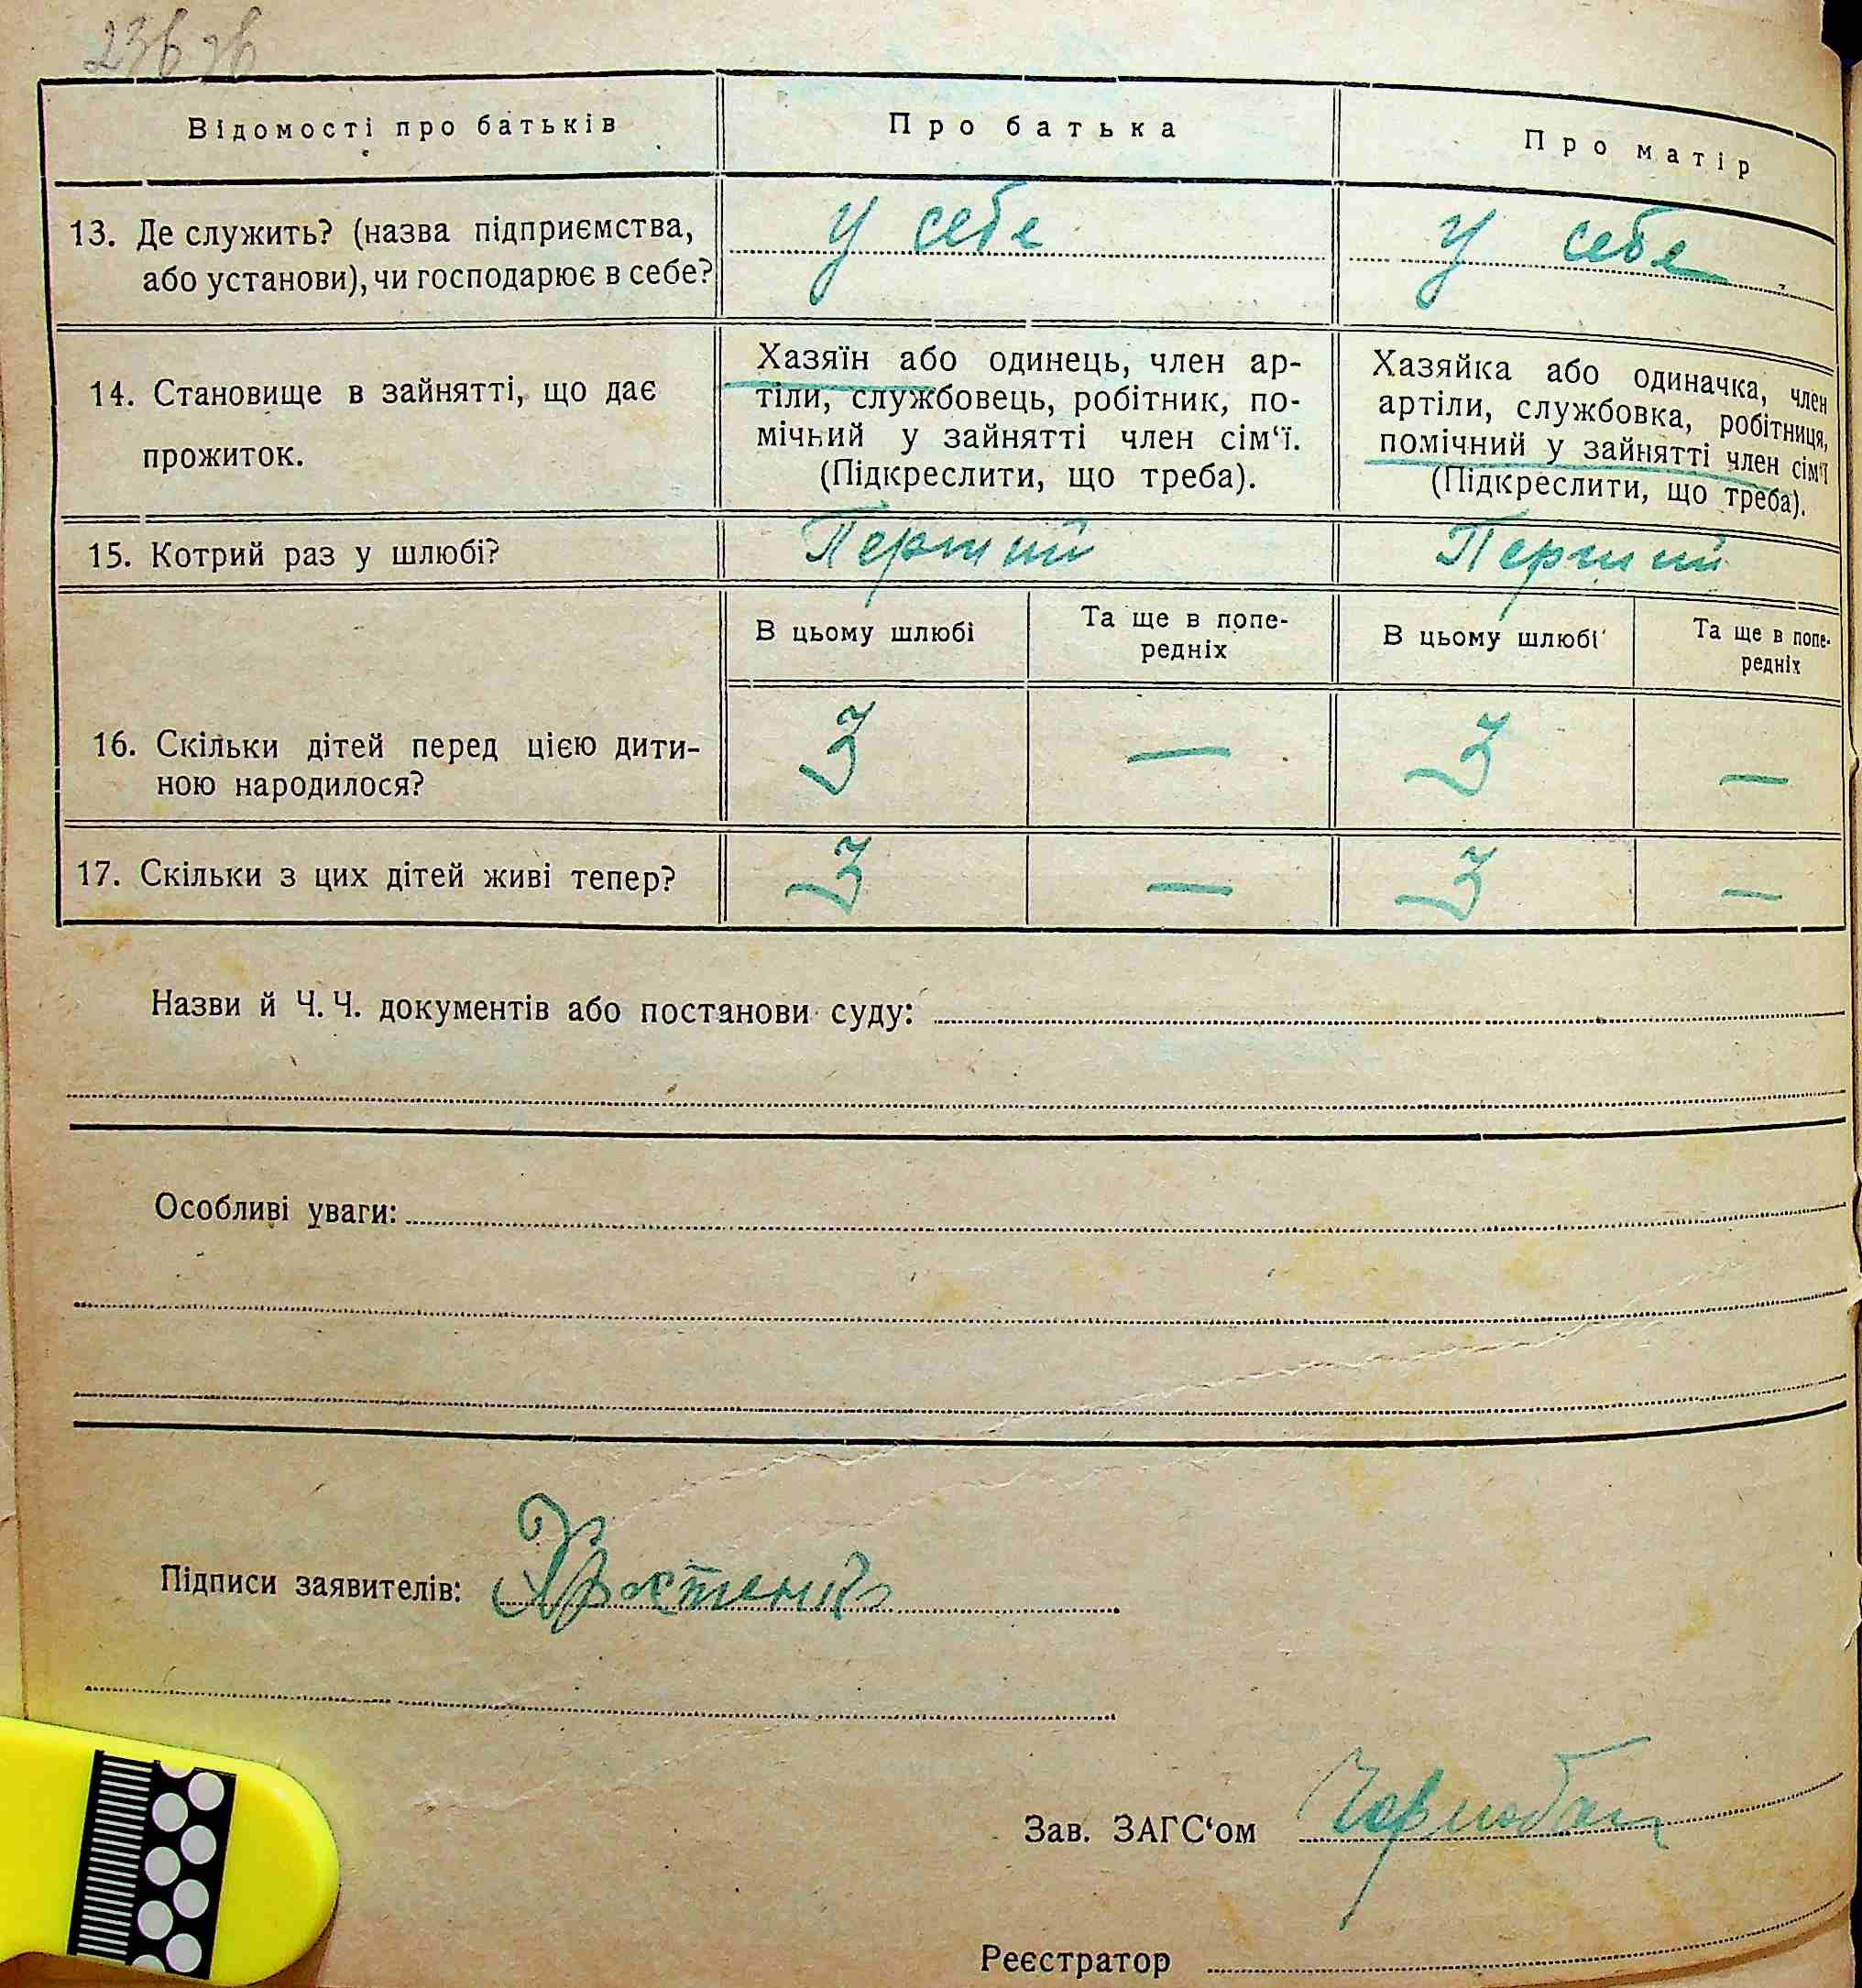 Відомості про батьків
Про батька
Про матір
13. Де служить? (назва підприємства,
або установи), чи господарює в себе?
у себе
у себе
14. Становище в зайнятті, що дає
прожиток.
Хазяїн або одинець, член ар-
тіли, службовець, робітник, по-
мічний у зайнятті член сім‘ї.
(Підкреслити, що треба).
Хазяйка або одиначка, член
артіли, службовка, робітниця,
помічний у зайнятті член сім‘ї
(Підкреслити, що треба).
15. Котрий раз у шлюбі?
Перший
Перший
В цьому шлюбі
Та ще в попе-
редніх
В цьому шлюбі
Та ще в попе-
редніх
16. Скільки дітей перед цією дити-
ною народилося?
3
—
3
—
17. Скільки з цих дітей живі тепер?
3
—
3
—
Назви й Ч. Ч. документів або постанови суду:
Особливі уваги:
Підписи заявителів:
Зав. ЗАГС‘ом
Реєстратор